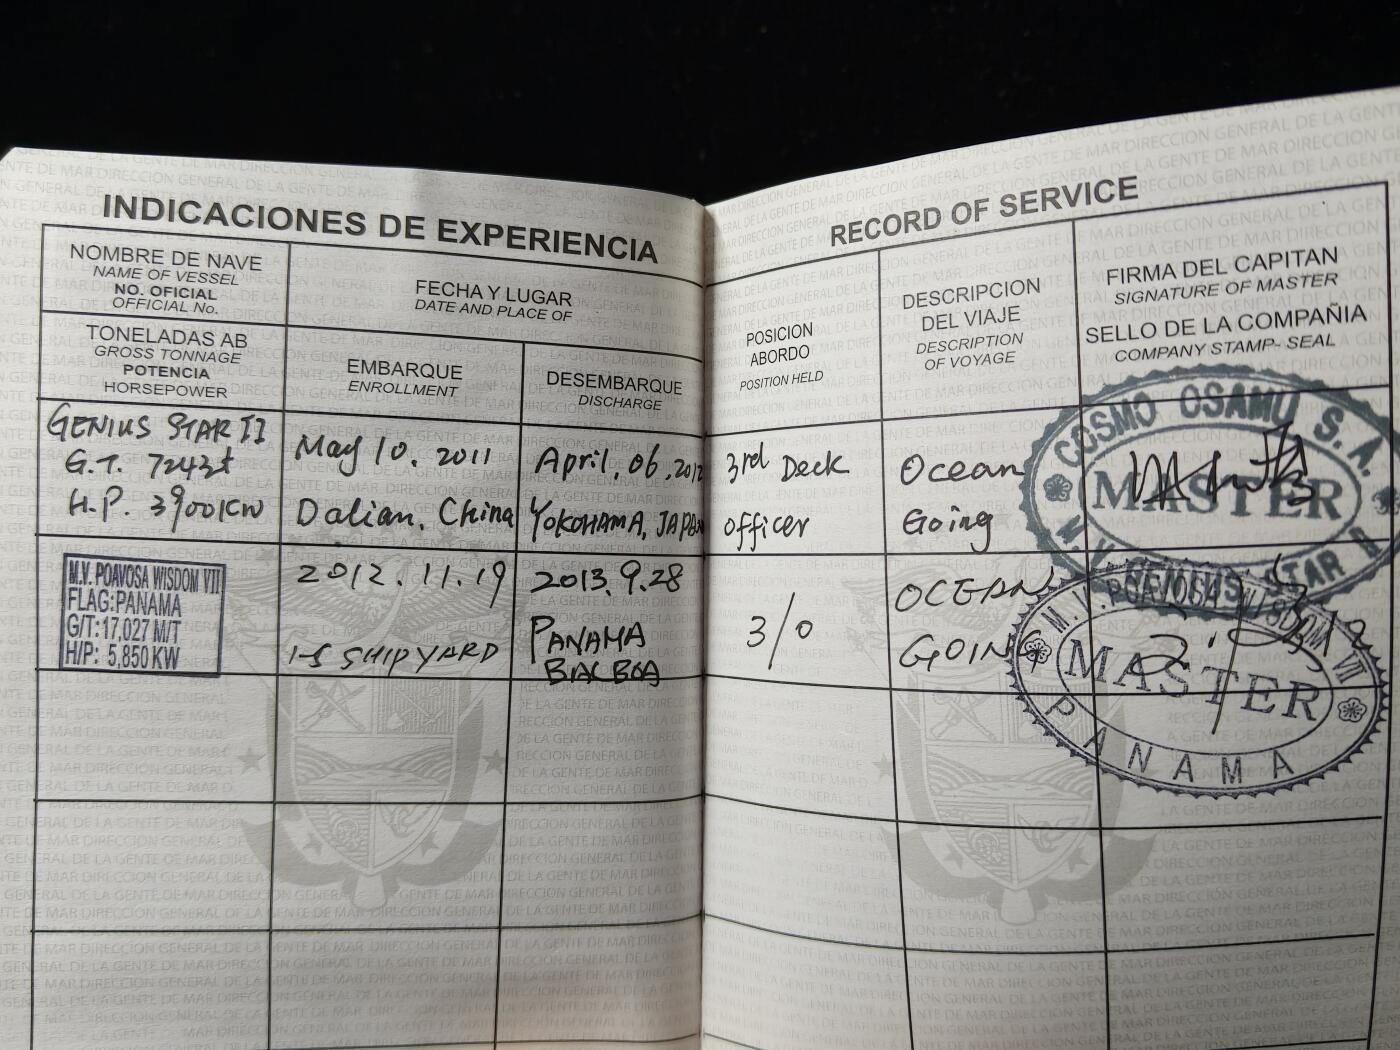 INDICACIONES DE EXPERIENCIA
NOMBRE DE NAVE
NAME OF VESSEL
NO. OFICIAL
OFFICIAL No.
FECHA Y LUGAR
DATE AND PLACE OF
TONELADAS AB
GROSS TONNAGE
POTENCIA
HORSEPOWER
EMBARQUE
ENROLLMENT
DESEMBARQUE
DISCHARGE
GENIUS STAR II
G.T. 7243t
H.P. 3900KW
May 10. 2011
Dalian, China
April 06, 2012
YOKOHAMA, JAPAN
M.V. POAVOSA WISDOM VII
FLAG:PANAMA
G/T:17,027 M/T
H/P: 5,850 KW
2012.11.19
I-S SHIPYARD
2013.9.28
PANAMA
BALBOA
RECORD OF SERVICE
POSICION
ABORDO
POSITION HELD
DESCRIPCION
DEL VIAJE
DESCRIPTION
OF VOYAGE
FIRMA DEL CAPITAN
SIGNATURE OF MASTER
SELLO DE LA COMPAÑIA
COMPANY STAMP- SEAL
3rd Deck
officer
Ocean
Going
COSMO OSAMU S.A.
MASTER
3/0
OCEAN
GOING
M.V. POAVOSA WISDOM VII
MASTER
PANAMA
DIRECCION GENERAL DE LA GENTE DE MAR